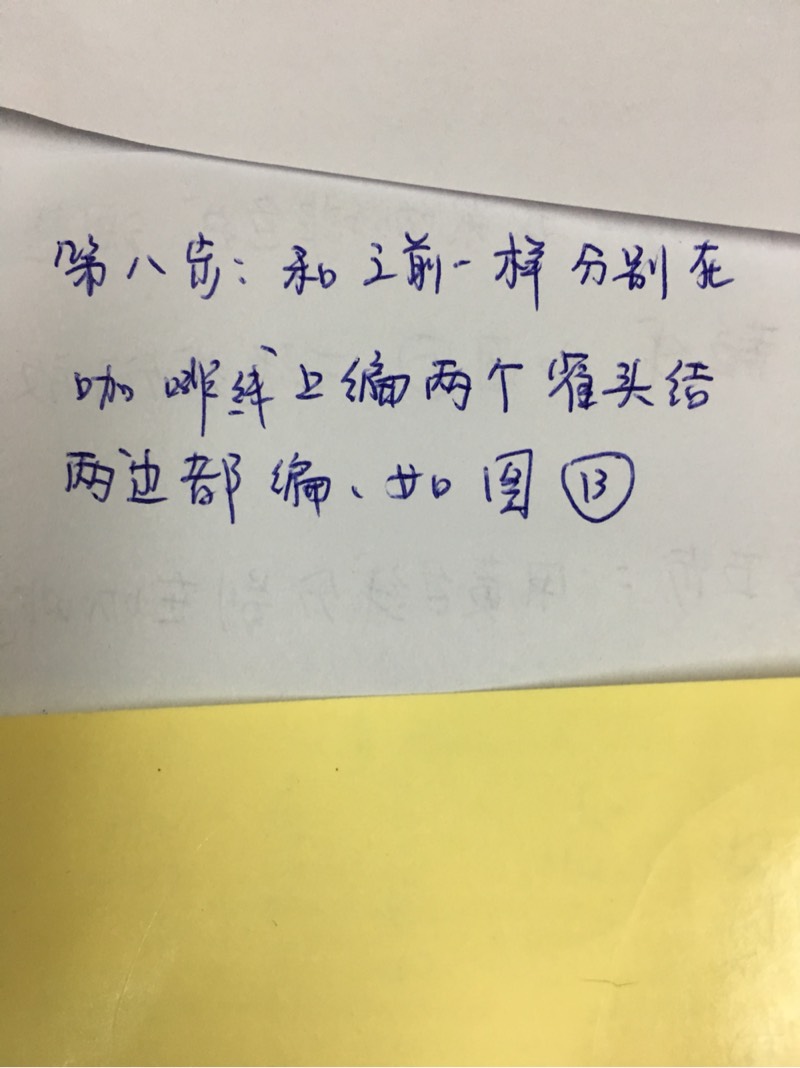 第八步:和之前一样分别在
咖啡线上编两个雀头结
两边都编、如图⑬